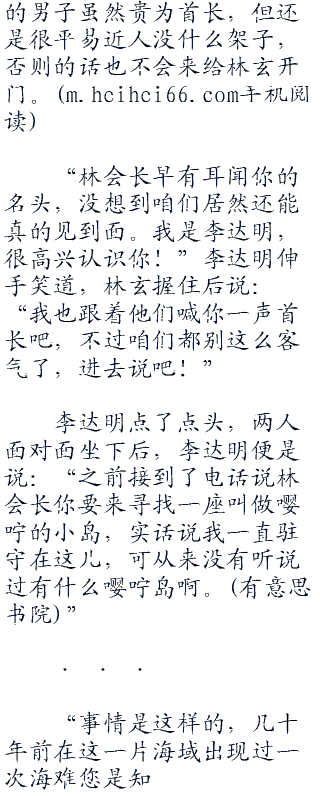 的男子虽然贵为首长，但还
是很平易近人没什么架子，
否则的话也不会来给林玄开
门。(m.hcihci66.com手机阅
读)
“林会长早有耳闻你的
名头，没想到咱们居然还能
真的见到面。我是李达明，
很高兴认识你！”李达明伸
手笑道，林玄握住后说：
“我也跟着他们喊你一声首
长吧，不过咱们都别这么客
气了，进去说吧！”
李达明点了点头，两人
面对面坐下后，李达明便是
说：“之前接到了电话说林
会长你要来寻找一座叫做嘤
咛的小岛，实话说我一直驻
守在这儿，可从来没有听说
过有什么嘤咛岛啊。(有意思
书院)”
． ． ．
“事情是这样的，几十
年前在这一片海域出现过一
次海难您是知